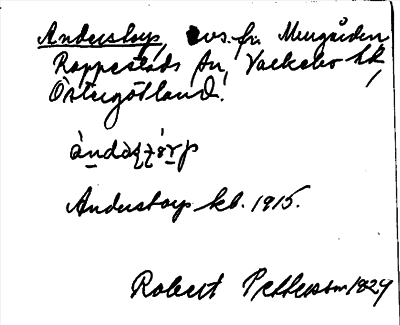 Anderstorp, avs. fr. Mengården
Rappestads sn, Vackebo hd,
Östergötland.
Anderstorp kb. 1915.
Robert Pettersson 1829